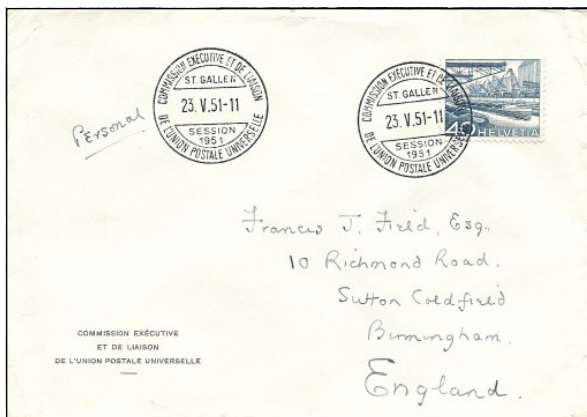 COMMISSION EXÉCUTIVE ET DE LIAISON
ST. GALLEN
23.V.51-11
SESSION
1951
DE L'UNION POSTALE UNIVERSELLE
COMMISSION EXÉCUTIVE ET DE LIAISON
ST. GALLEN
23.V.51-11
SESSION
1951
DE L'UNION POSTALE UNIVERSELLE
40 HELVETIA
Personal
Frances J. Field, Esq.,
10 Richmond Road.
Sutton Coldfield
Birmingham.
England.
COMMISSION EXÉCUTIVE
ET DE LIAISON
DE L'UNION POSTALE UNIVERSELLE